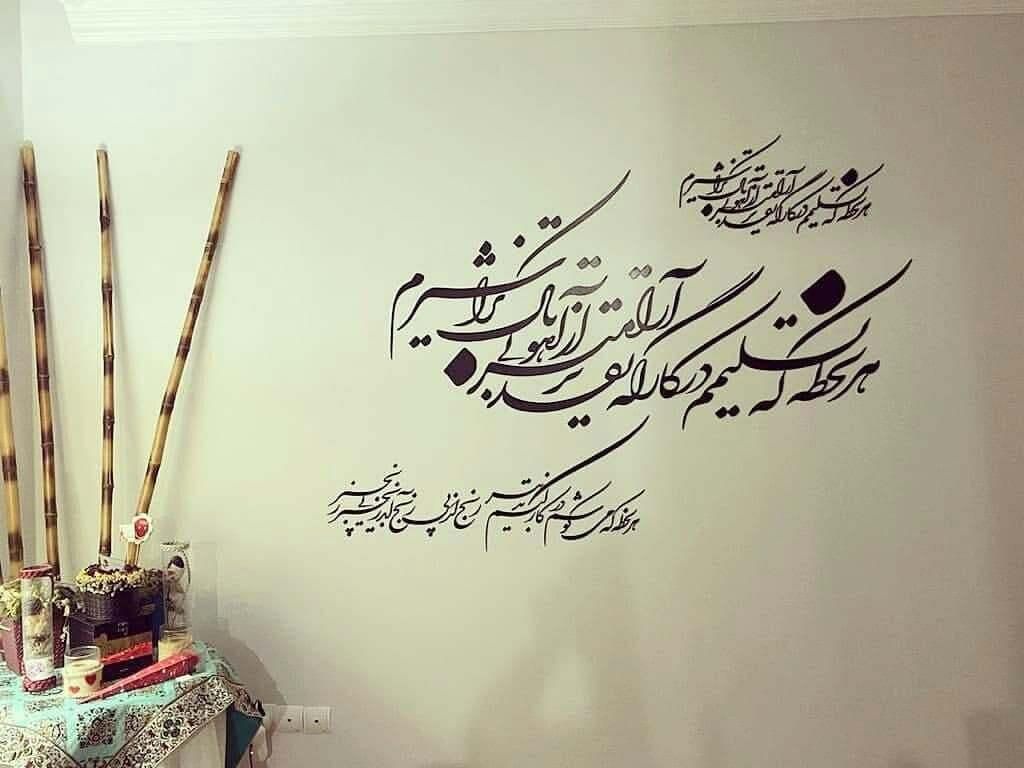 هر لحظه که تسلیمم در کارگه تقدیر آرامتر از آهو بی باک تر از شیرم
هر لحظه که تسلیمم در کارگه تقدیر آرامتر از آهو بی باک تر از شیرم
هر لحظه که می کوشم در کار کنم تدبیر رنج از پی رنج آید زنجیر پی زنجیر